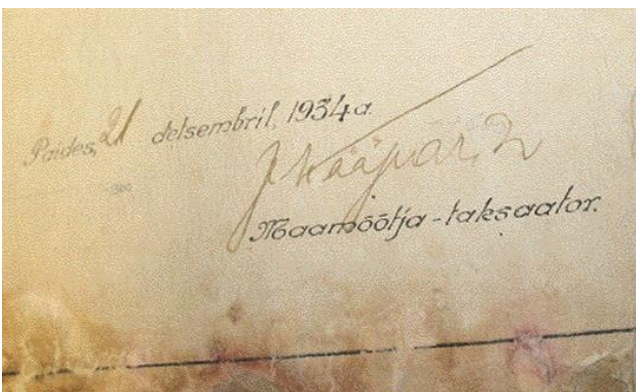 Paides, 21 detsembril, 1934a.
Maamõõtja-taksaator.